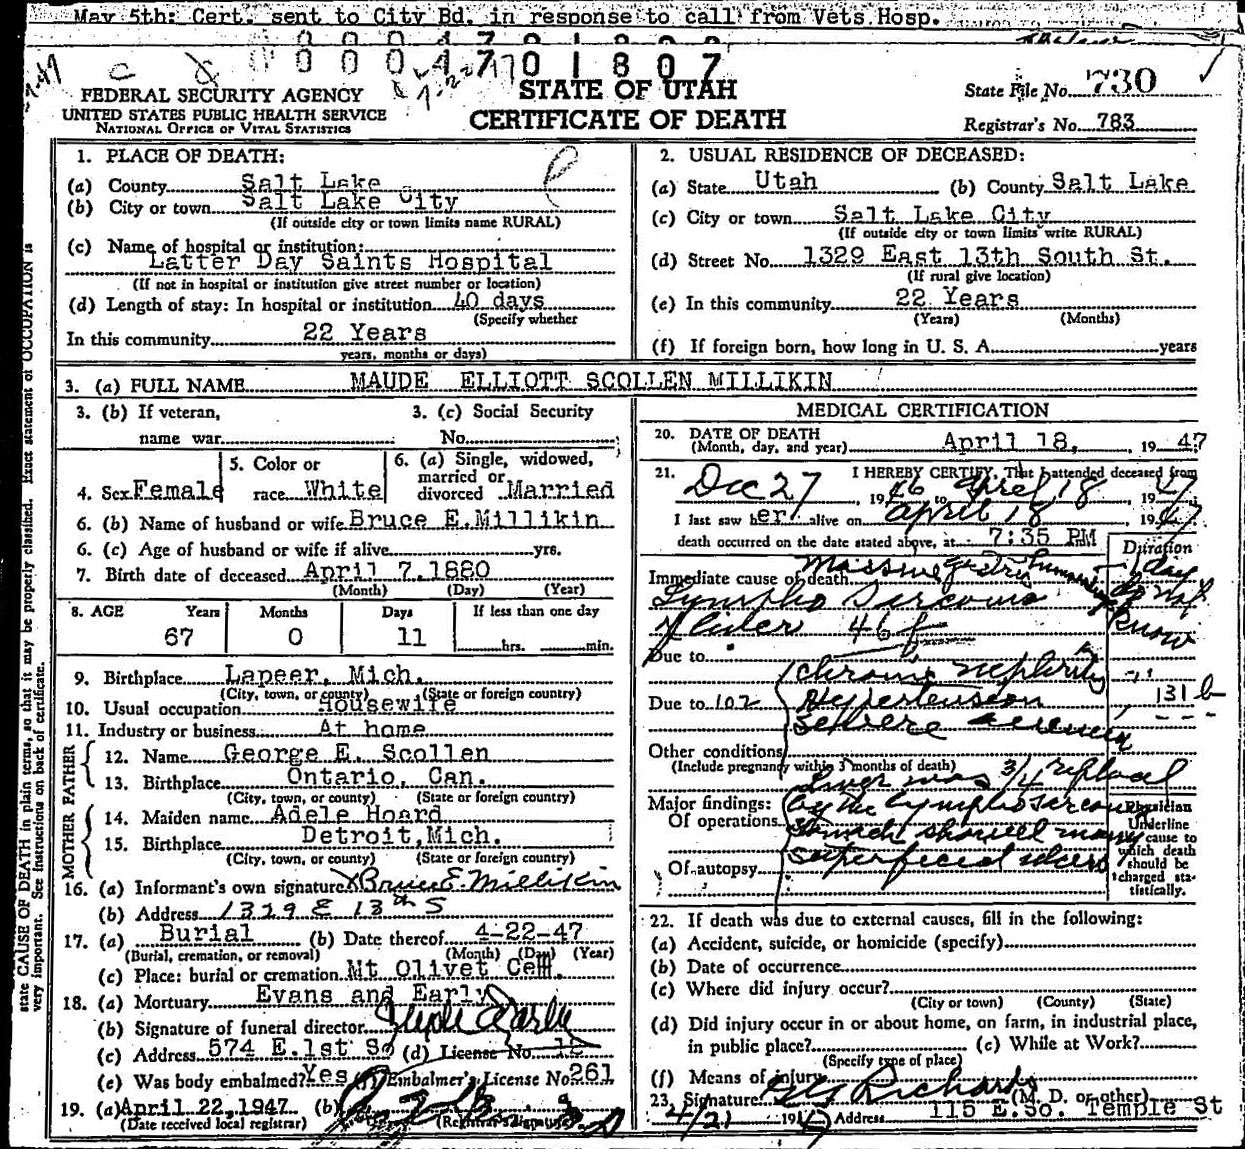 May 5th: Cert. sent to City Bd. in response to call from Vets Hosp.
0 0 0 4 7 0 1 8 0 7
FEDERAL SECURITY AGENCY
UNITED STATES PUBLIC HEALTH SERVICE
NATIONAL OFFICE OF VITAL STATISTICS
STATE OF UTAH
CERTIFICATE OF DEATH
State File No. 730
Registrar's No. 783
1. PLACE OF DEATH:
(a) County Salt Lake
(b) City or town Salt Lake City
(If outside city or town limits name RURAL)
(c) Name of hospital or institution:
Latter Day Saints Hospital
(If not in hospital or institution give street number or location)
(d) Length of stay: In hospital or institution 40 days
(Specify whether
In this community 22 Years
years, months or days)
2. USUAL RESIDENCE OF DECEASED:
(a) State Utah (b) County Salt Lake
(c) City or town Salt Lake City
(If outside city or town limits write RURAL)
(d) Street No. 1329 East 13th South St.
(If rural give location)
(e) In this community 22 Years
(Years) (Months)
(f) If foreign born, how long in U. S. A. years
3. (a) FULL NAME MAUDE ELLIOTT SCOLLEN MILLIKIN
3. (b) If veteran,
name war
3. (c) Social Security
No.
4. Sex Female
5. Color or
race White
6. (a) Single, widowed,
married or
divorced Married
6. (b) Name of husband or wife Bruce E.Millikin
6. (c) Age of husband or wife if alive yrs.
7. Birth date of deceased April 7,1880
(Month) (Day) (Year)
8. AGE Years Months Days If less than one day
67 0 11 hrs. min.
9. Birthplace Lapeer, Mich.
(City, town, or county) (State or foreign country)
10. Usual occupation Housewife
11. Industry or business At home
FATHER
12. Name George E. Scollen
13. Birthplace Ontario, Can.
(City, town, or county) (State or foreign country)
MOTHER
14. Maiden name Adele Hoard
15. Birthplace Detroit,Mich.
(City, town, or county) (State or foreign country)
16. (a) Informant's own signature X Bruce E. Millikin
(b) Address 1329 E 13th S
17. (a) Burial (b) Date thereof 4-22-47
(Burial, cremation, or removal) (Month) (Day) (Year)
(c) Place: burial or cremation Mt Olivet Cem.
18. (a) Mortuary Evans and Early
(b) Signature of funeral director
(c) Address 574 E.1st So (d) License No. 12
(e) Was body embalmed? Yes (f) Embalmer's License No. 261
19. (a) April 22,1947 (b)
(Date received local registrar) (Registrar's signature)
MEDICAL CERTIFICATION
20. DATE OF DEATH
(Month, day, and year) April 18, 1947
21. I HEREBY CERTIFY, That I attended deceased from
Dec 27, 1946 to April 18, 1947
I last saw her alive on April 18, 1947
death occurred on the date stated above, at 7:35 PM
Duration
Immediate cause of death Massive gastric hemorrhage 1 day
Lympho Sarcoma do not
of Liver 46 f know
Due to
chronic nephritis
Due to 102 Hypertension 131 b
severe
Other conditions
(Include pregnancy within 3 months of death)
Liver was 3/4 replaced
Major findings: by the lymphosarcoma
Of operations Stomach showed many
superficial ulcers
Of autopsy
Physician
Underline
cause to
which death
should be
charged sta-
tistically.
22. If death was due to external causes, fill in the following:
(a) Accident, suicide, or homicide (specify)
(b) Date of occurrence
(c) Where did injury occur?
(City or town) (County) (State)
(d) Did injury occur in or about home, on farm, in industrial place,
in public place? (e) While at Work?
(Specify type of place)
(f) Means of injury
23. Signature Richards (M. D. or other)
4/21 1947 Address 115 E.So. Temple St
state CAUSE OF DEATH in plain terms, so that it may be properly classified. Exact statement of OCCUPATION is
very important. See instructions on back of certificate.